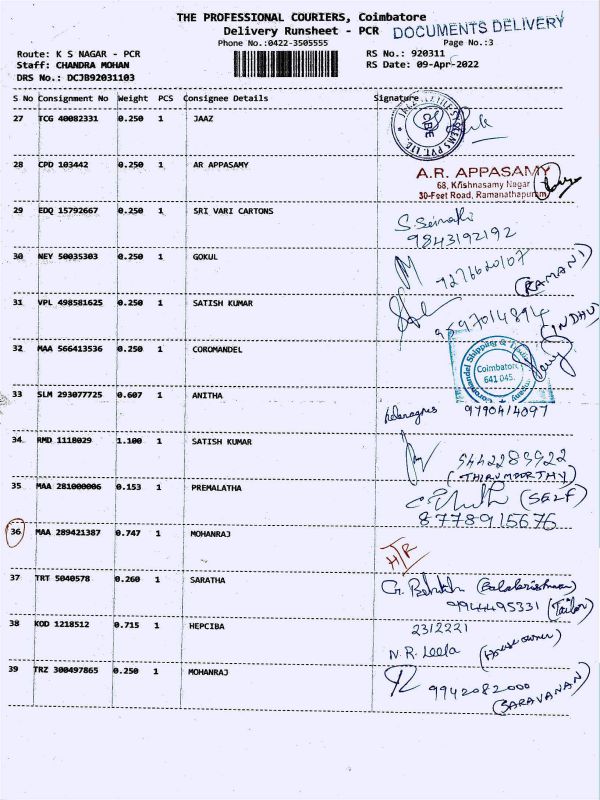 THE PROFESSIONAL COURIERS, Coimbatore
Delivery Runsheet - PCR
DOCUMENTS DELIVERY
Phone No.:0422-3505555
Page No.:3
Route: K S NAGAR - PCR
RS No.: 920311
Staff: CHANDRA MOHAN
RS Date: 09-Apr-2022
DRS No.: DCJB92031103
S No Consignment No Weight PCS Consignee Details Signature
27 TCG 40082331 0.250 1 JAAZ
28 CPD 103442 0.250 1 AR APPASAMY
A.R. APPASAMY
68, Krishnasamy Nagar
30-Feet Road, Ramanathapuram
29 EDQ 15792667 0.250 1 SRI VARI CARTONS
9843192192
30 NEY 50035303 0.250 1 GOKUL
(RAMANI)
31 VPL 498581625 0.250 1 SATISH KUMAR
9597014894
(INDHU)
32 MAA 566413536 0.250 1 COROMANDEL
Coromandel Shipping &
Coimbatore
641 045.
33 SLM 293077725 0.607 1 ANITHA
9790414097
34 RMD 1118029 1.100 1 SATISH KUMAR
(THIRUMOORTHY)
35 MAA 281000006 0.153 1 PREMALATHA
(SELF)
8778915676
36 MAA 289421387 0.747 1 MOHANRAJ
37 TRT 5040578 0.260 1 SARATHA
(Balakrishnan)
9944495331 (Tailor)
38 KOD 1218512 0.715 1 HEPCIBA
2312221
N.R. Leela (House owner)
39 TRZ 300497865 0.250 1 MOHANRAJ
9942082000
(SARAVANAN)